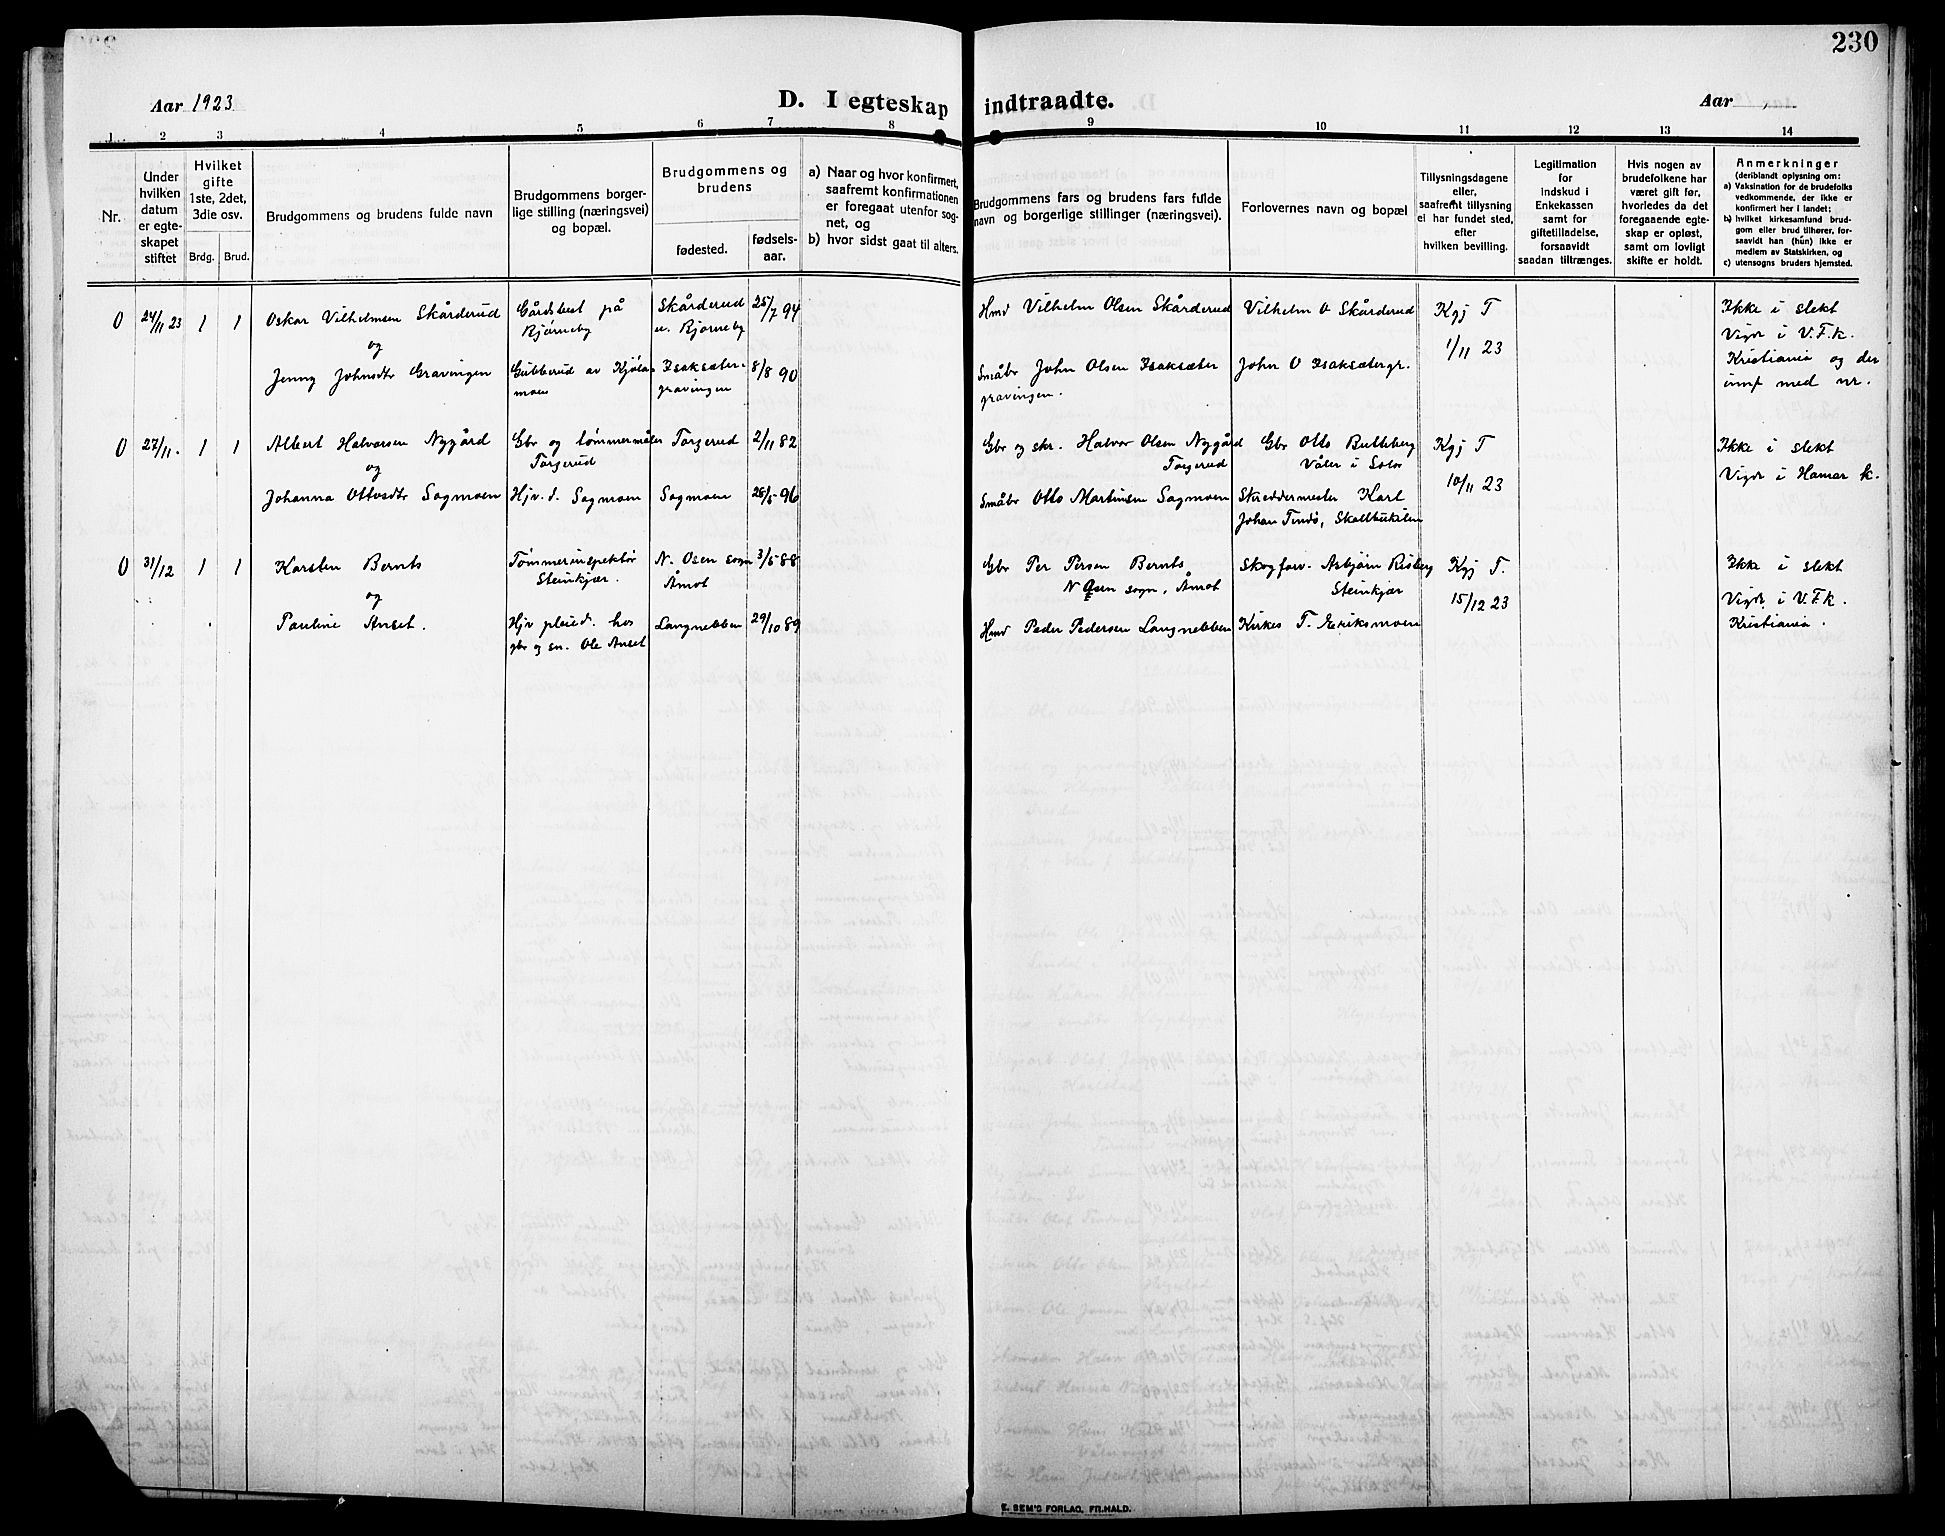 230
Aar 1923
D. I egteskap indtraadte.
Aar
1 2 3 4 5 6 7 8 9 10 11 12 13 14
Nr.
Under
hvilken
datum
er egte-
skapet
stiftet
Hvilket
gifte
1ste, 2det,
3die osv.
Brdg. Brud.
Brudgommens og brudens fulde navn
Brudgommens borger-
lige stilling (næringsvei)
og bopæl.
Brudgommens og
brudens
fødested.
fødsels-
aar.
a) Naar og hvor konfirmert,
saafremt konfirmationen
er foregaat utenfor sog-
net, og
b) hvor sidst gaat til alters.
Brudgommens fars og brudens fars fulde
navn og borgerlige stillinger (næringsvei).
Forlovernes navn og bopæl
Tillysningsdagene
eller,
saafremt tillysning
ei har fundet sted,
efter
hvilken bevilling.
Legitimation
for
indskud i
Enkekassen
samt for
giftetilladelse,
forsaavidt
saadan tiltrænges.
Hvis nogen av
brudefolkene har
været gift før,
hvorledes da det
foregaaende egte-
skap er opløst,
samt om lovligt
skifte er holdt.
Anmerkninger
(deriblandt oplysning om:
a) Vaksination for de brudefolks
vedkommende, der ikke er
konfirmert her i landet;
b) hvilket kirkesamfund brud-
gom eller brud tilhører, for-
saavidt han (hun) ikke er
medlem av Statskirken, og
c) utensogns bruders hjemsted.
0 24/11 23 1 1
Oskar Vilhelmsen Skårderud
og
Jenny Johnsdtr Gravingen
Gårdsbest på
Bjørneby
Gubberud av Kjøla-
moen
Skårderud
u. Bjørneby
Isaksæter-
gravingen
25/7 94
8/8 90
Hmd Vilhelm Olsen Skårderud
Småbr John Olsen Isaksæter
gravingen.
Vilhelm O Skårderud
John O Isaksætergr.
Kgj T
1/11 23
Ikke i slekt
Vigde i V.F.k.
Kristiania og der
innf med nr.
0 27/11. 1 1
Albert Halvorsen Nygård
og
Johanna Ottosdtr Sagmoen
Gbr og tømmermåler
Torgerud
Hjv. d. Sagmoen
Torgerud
Sagmoen
2/11 82
25/5 96
Gbr og skr. Halvor Olsen Nygård
Torgerud
Småbr Otto Martinsen Sagmoen
Gbr Otto Butteberg
Våler i Solør
Skreddermester Karl
Johan Tindø, Skallbukilen
Kgj T
10/11 23
Ikke i slekt
Vigde i Hamar k.
0 31/12 1 1
Karsten Bernts
og
Pauline Anset.
Tømmerinspektør
Steinkjær.
Hjv pleied. hos
gbr og sn. Ole Anset
N. Osen sogn
Åmot
Langnebben
3/5 88
29/10 89
Gbr Per Persen Bernts
N Osen sogn, Åmot
Hmd Peder Pedersen Langnebben
Skogforv. Asbjørn Risberg
Steinkjær
Kirkes T. Eriksmoen
Kgj T.
15/12 23
Ikke i slekt
Vigde i V.F.k.
Kristiania.
E. SEM'S FORLAG, FR.HALD.